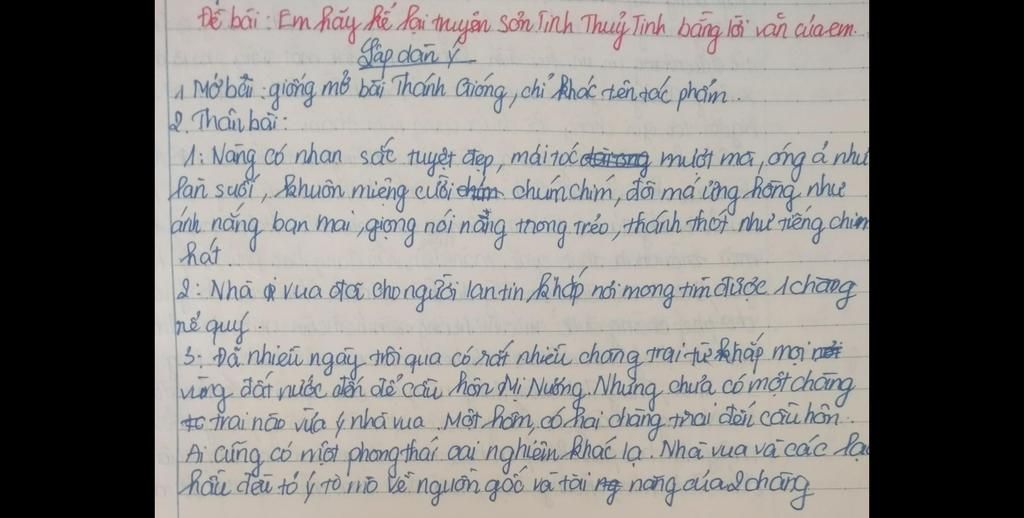 Đề bài: Em hãy kể lại truyện Sơn Tinh Thuỷ Tinh bằng lời văn của em.
Lập dàn ý
1 Mở bài: giống mở bài Thánh Gióng, chỉ khác tên tác phẩm.
2. Thân bài:
1: Nàng có nhan sắc tuyệt đẹp, mái tóc mượt mà, óng ả như
làn suối, khuôn miệng cười chúm chím, đôi má ửng hồng như
ánh nắng ban mai, giọng nói nằng trong trẻo, thánh thót như tiếng chim
hát.
2: Nhà vua đã cho người lan tin khắp nơi mong tìm được 1 chàng
rể quý.
3: Đã nhiều ngày trôi qua có rất nhiều chàng trai từ khắp mọi
vùng đất nước đến để cầu hôn Mị Nương. Nhưng chưa có một chàng
trai nào vừa ý nhà vua. Một hôm, có hai chàng trai đến cầu hôn.
Ai cũng có một phong thái oai nghiêm khác lạ. Nhà vua và các lạc
hầu đều tỏ ý tò mò về nguồn gốc và tài năng của 2 chàng